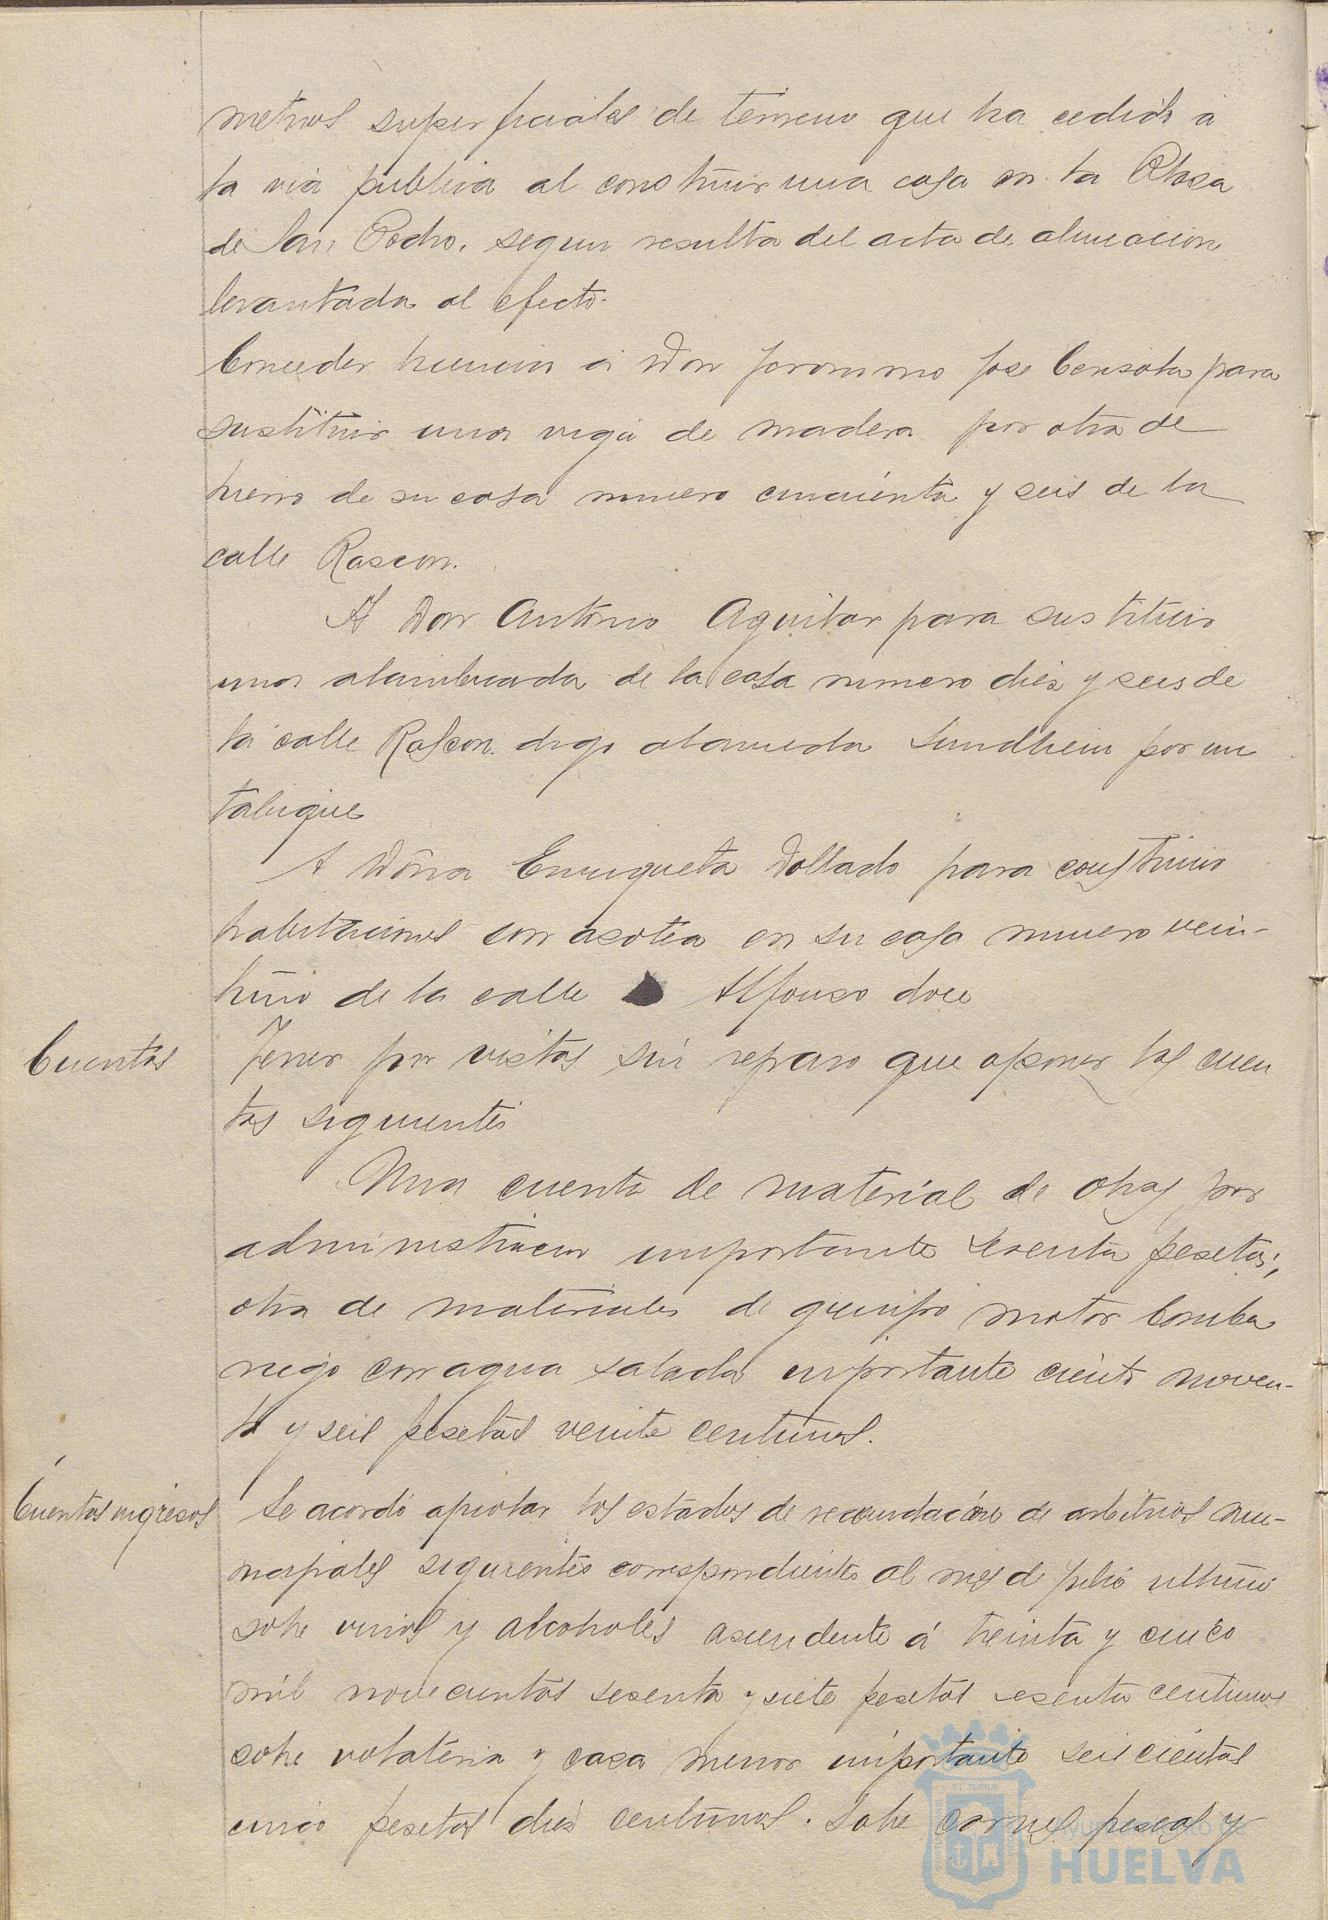 metros superficiales de terreno que ha cedido a
la via publica al construir una casa en la Plaza
de San Pedro, segun resulta del acta de alineacion
levantada al efecto.
Conceder licencia a Don Jeronimo Jose Censola para
sustituir una viga de madera por otra de
hierro de su casa numero cincuenta y seis de la
calle Rascon.
A Don Antonio Aguilar para sustituir
una alambrada de la casa numero diez y seis de
la calle Rascon digo alameda Sundheim por un
tabique
A Doña Enriqueta Dollado para construir
habitaciones con azotea en su casa numero vein-
tiuno de la calle Alfonso doce
Cuentas
Tener por vistas sin reparo que oponer las cuen
tas siguientes
Una cuenta de material de obras por
administracion importante pesetas,
otra de materiales de grupo motor bomba
riego con agua salada importante ciento noven-
ta y seis pesetas veinte centimos.
Cuentas ingresos
Se acordó aprobar los estados de recaudacion de arbitrios mu-
nicipales siguientes correspondientes al mes de Julio ultimo
sobre vinos y alcoholes ascendente á treinta y cinco
mil novecientas sesenta y siete pesetas sesenta centimos
sobre volateria y caza menor importante seiscientas
cinco pesetas diez centimos. Sobre carnes pescas y
Ayuntamiento de
HUELVA